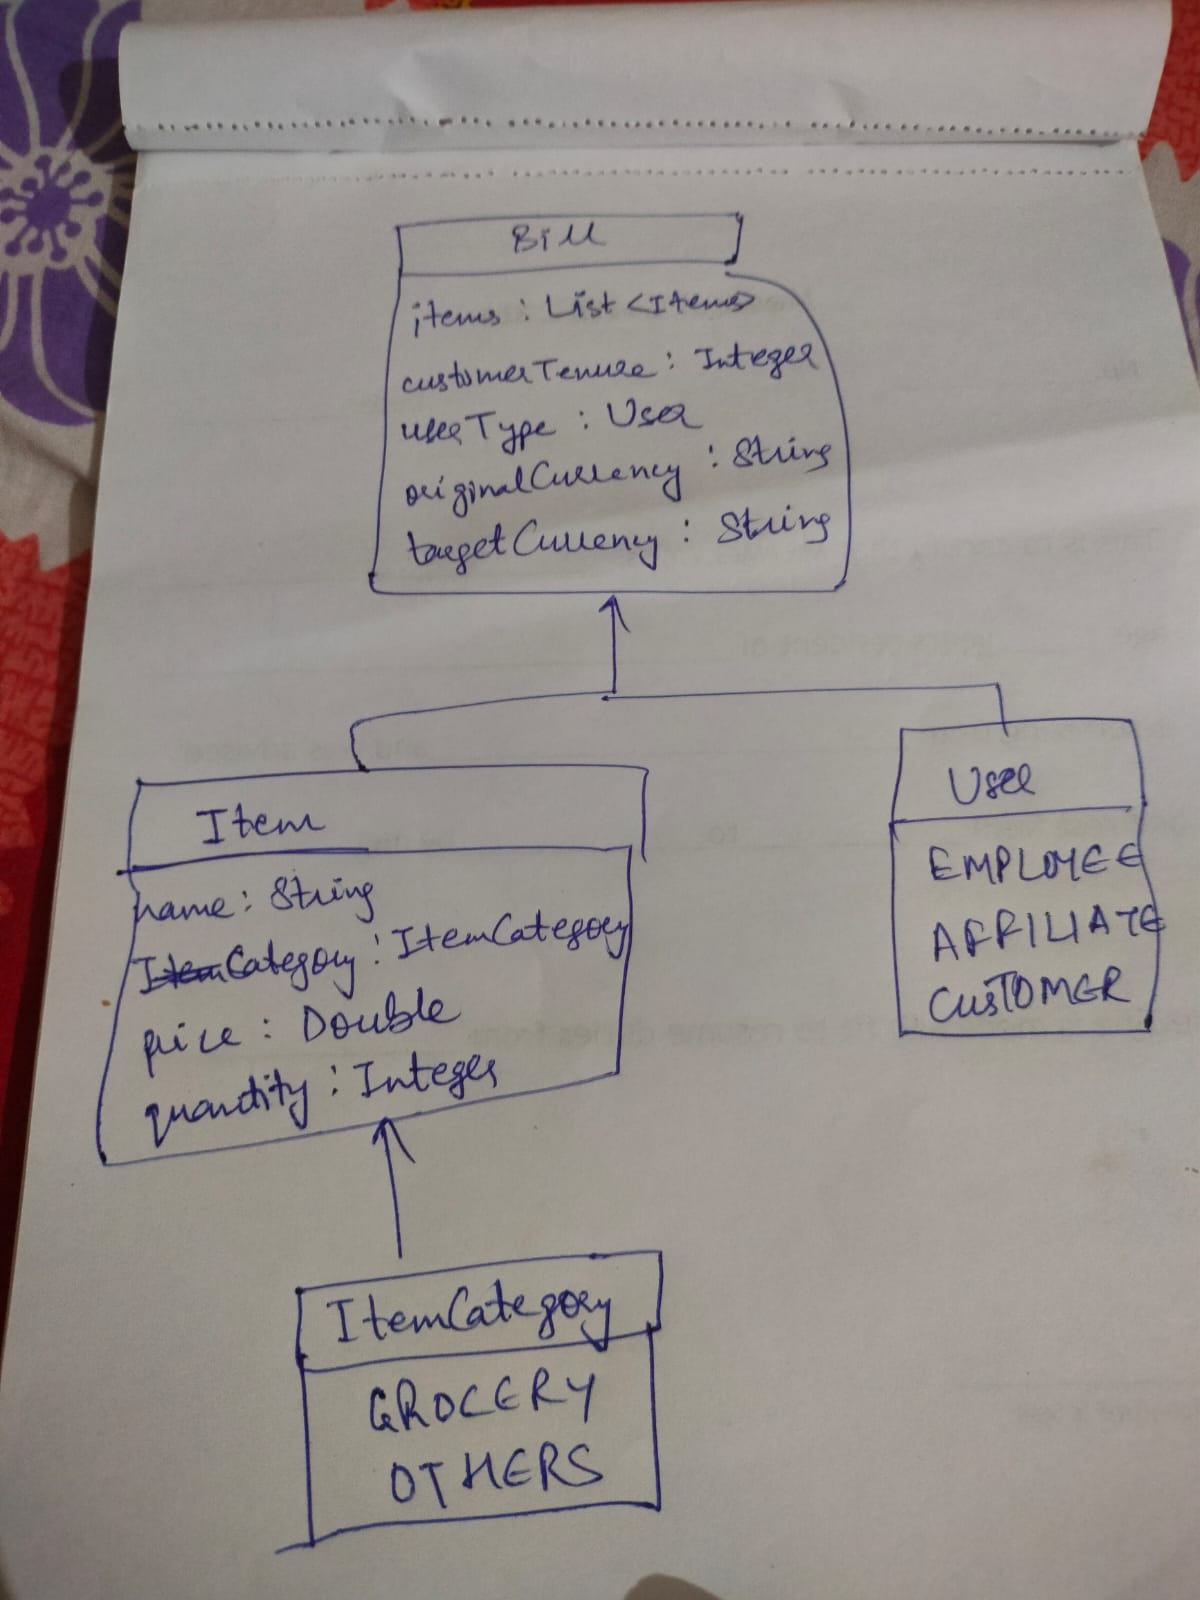 Bill
items : List <Items>
customerTenure : Integer
userType : User
originalCurrency : String
targetCurrency : String
Item
name : String
Category : ItemCategory
price : Double
quantity : Integer
User
EMPLOYEE
AFFILIATE
CUSTOMER
ItemCategory
GROCERY
OTHERS